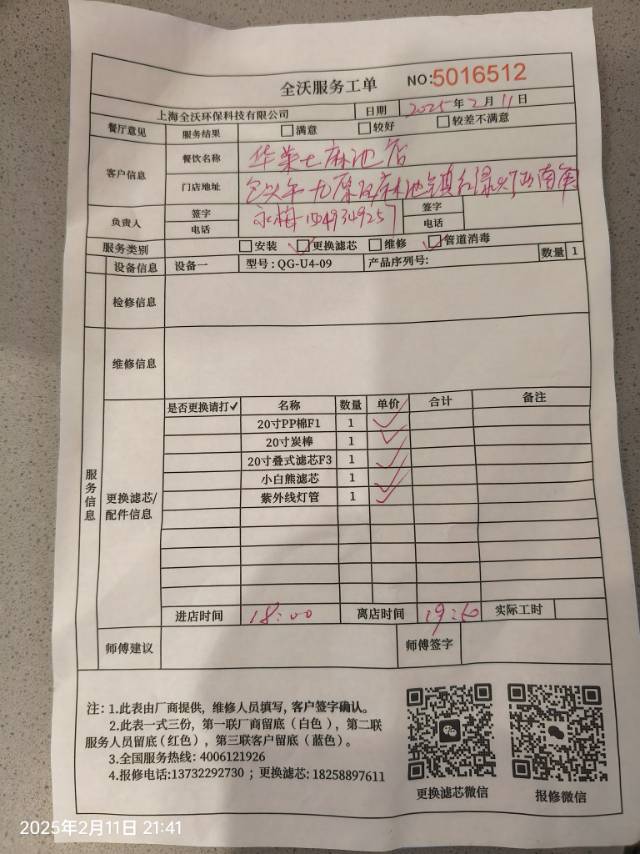 全沃服务工单 NO:5016512
上海全沃环保科技有限公司 日期 2025年2月11日
餐厅意见 服务结果 □满意 □较好 □较差不满意
客户信息 餐饮名称 华莱士麻池店
门店地址 包头市九原区麻池镇
负责人 签字 签字
电话 电话
服务类别 □安装 □更换滤芯 □维修 □管道消毒
设备信息 设备一 型号:QG-U4-09 产品序列号: 数量 1
检修信息
维修信息
服务信息
更换滤芯/配件信息
是否更换请打✓ 名称 数量 单价 合计 备注
20寸PP棉F1 1 ✓
20寸炭棒 1 ✓
20寸叠式滤芯F3 1 ✓
小白熊滤芯 1 ✓
紫外线灯管 1 ✓
进店时间 18:00 离店时间 19:50 实际工时
师傅建议 师傅签字
注: 1.此表由厂商提供, 维修人员填写, 客户签字确认。
2.此表一式三份, 第一联厂商留底(白色), 第二联
服务人员留底(红色), 第三联客户留底(蓝色)。
3.全国服务热线: 4006121926
4.报修电话:13732292730 ; 更换滤芯: 18258897611
更换滤芯微信 报修微信
2025年2月11日 21:41